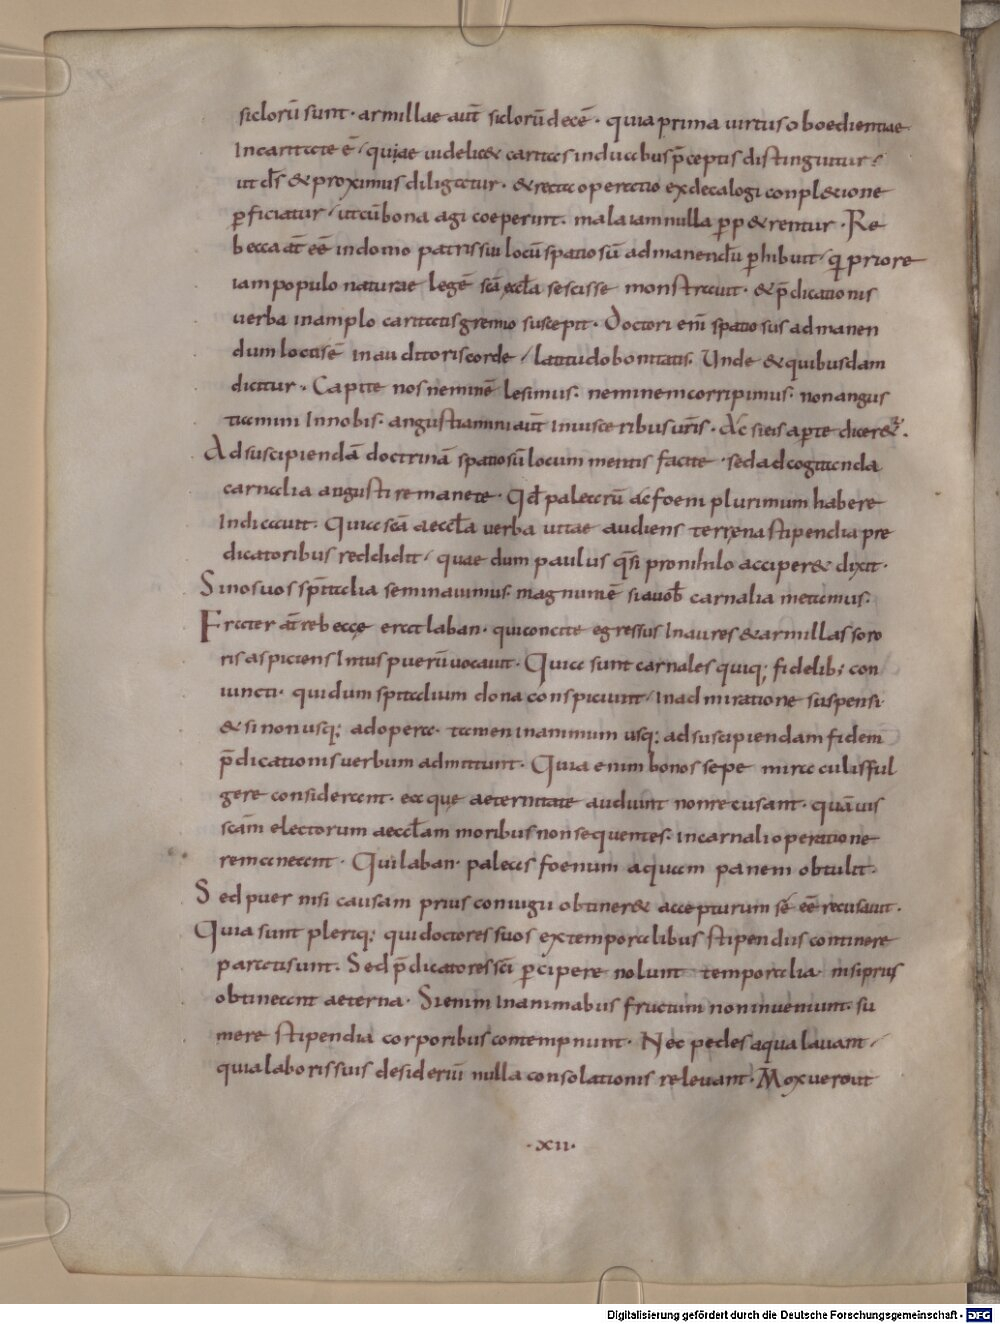 siclorū sunt · armillae aut̄ siclorū decē · quia prima uirtus oboedientiae
In caritate ē / quiae uidelic& caritas in duabus p̄ceptis distinguitur /
ut d̄s & proximus diligatur · & recta operatio ex decalogi conpl&ione
ꝑficiatur / ut cū bona agi coeperint · mala iam nulla ꝑp&rentur · Re
becca at̄ eē in domo patris sui locū spatiosū ad manendū ꝑhibuit / q̄ priore
iam populo naturae legē scā eccl̄a se scisse monstrauit · & p̄dicationis
uerba in amplo caritatis gremio suscepit · Doctori eni͞ spatiosus ad manen
dum locus ē in auditoris corde / latitudo bonitatis. Unde & quibusdam
dicitur · Capite nos neminē lesimus · neminem corripimus · non angus
tiamini In nobis · angustiamini aut̄ In uisceribus ur̄is · Ac si eis aperte dicer&ur ·
Ad suscipiendā doctrinā spatiosū locum mentis facite · sed ad cogitanda
carnalia angusti remanete · Qd̄ palearū ac foeni plurimum habere
Indicauit · Quia scā aeccl̄a uerba uitae audiens terrena stipendia pre
dicatoribus reddidit / quae dum paulus q̄si pro nihilo acciper& dixit ·
Si nos uos sp̄italia seminauimus · magnum ē si a uob̄ carnalia metamus ·
Frater at̄ rebeccę erat laban · qui concite egressus Inaures & armillas soro
ris aspiciens Intus puerū uocauit · Quia sunt carnales quiq; fidelib; con
iuncti · qui dum spitalium dona conspiciunt / In admiratione suspensi
& si non usq; ad opera · tamen In animum usq; ad suscipiendam fidem
p̄dicationis uerbum admittunt · Quia enim bonos sepe miraculis ful
gere considerant · ea quę aeternitate audiunt non recusant · quāuis
scām electorum aeccl̄am moribus non sequentes · in carnali operatione
remanent · Qui laban · paleas foenum aquam panem obtulit ·
Sed puer nisi causam prius coniugii obtiner& accepturum sē eē recusauit ·
Quia sunt pleriq; qui doctores suos ex temporalibus stipendiis continere
parati sunt · Sed p̄dicatores sc̄i ꝑcipere nolunt temporalia · nisi prius
obtineant aeterna · Si enim In animabus fructum non inueniunt · su
mere stipendia corporibus contempnunt · Nec pedes aqua lauant /
quia laboris suis desideriū nulla consolationis releuant · Mox uero ut
· xii ·
Digitalisierung gefördert durch die Deutsche Forschungsgemeinschaft - DFG